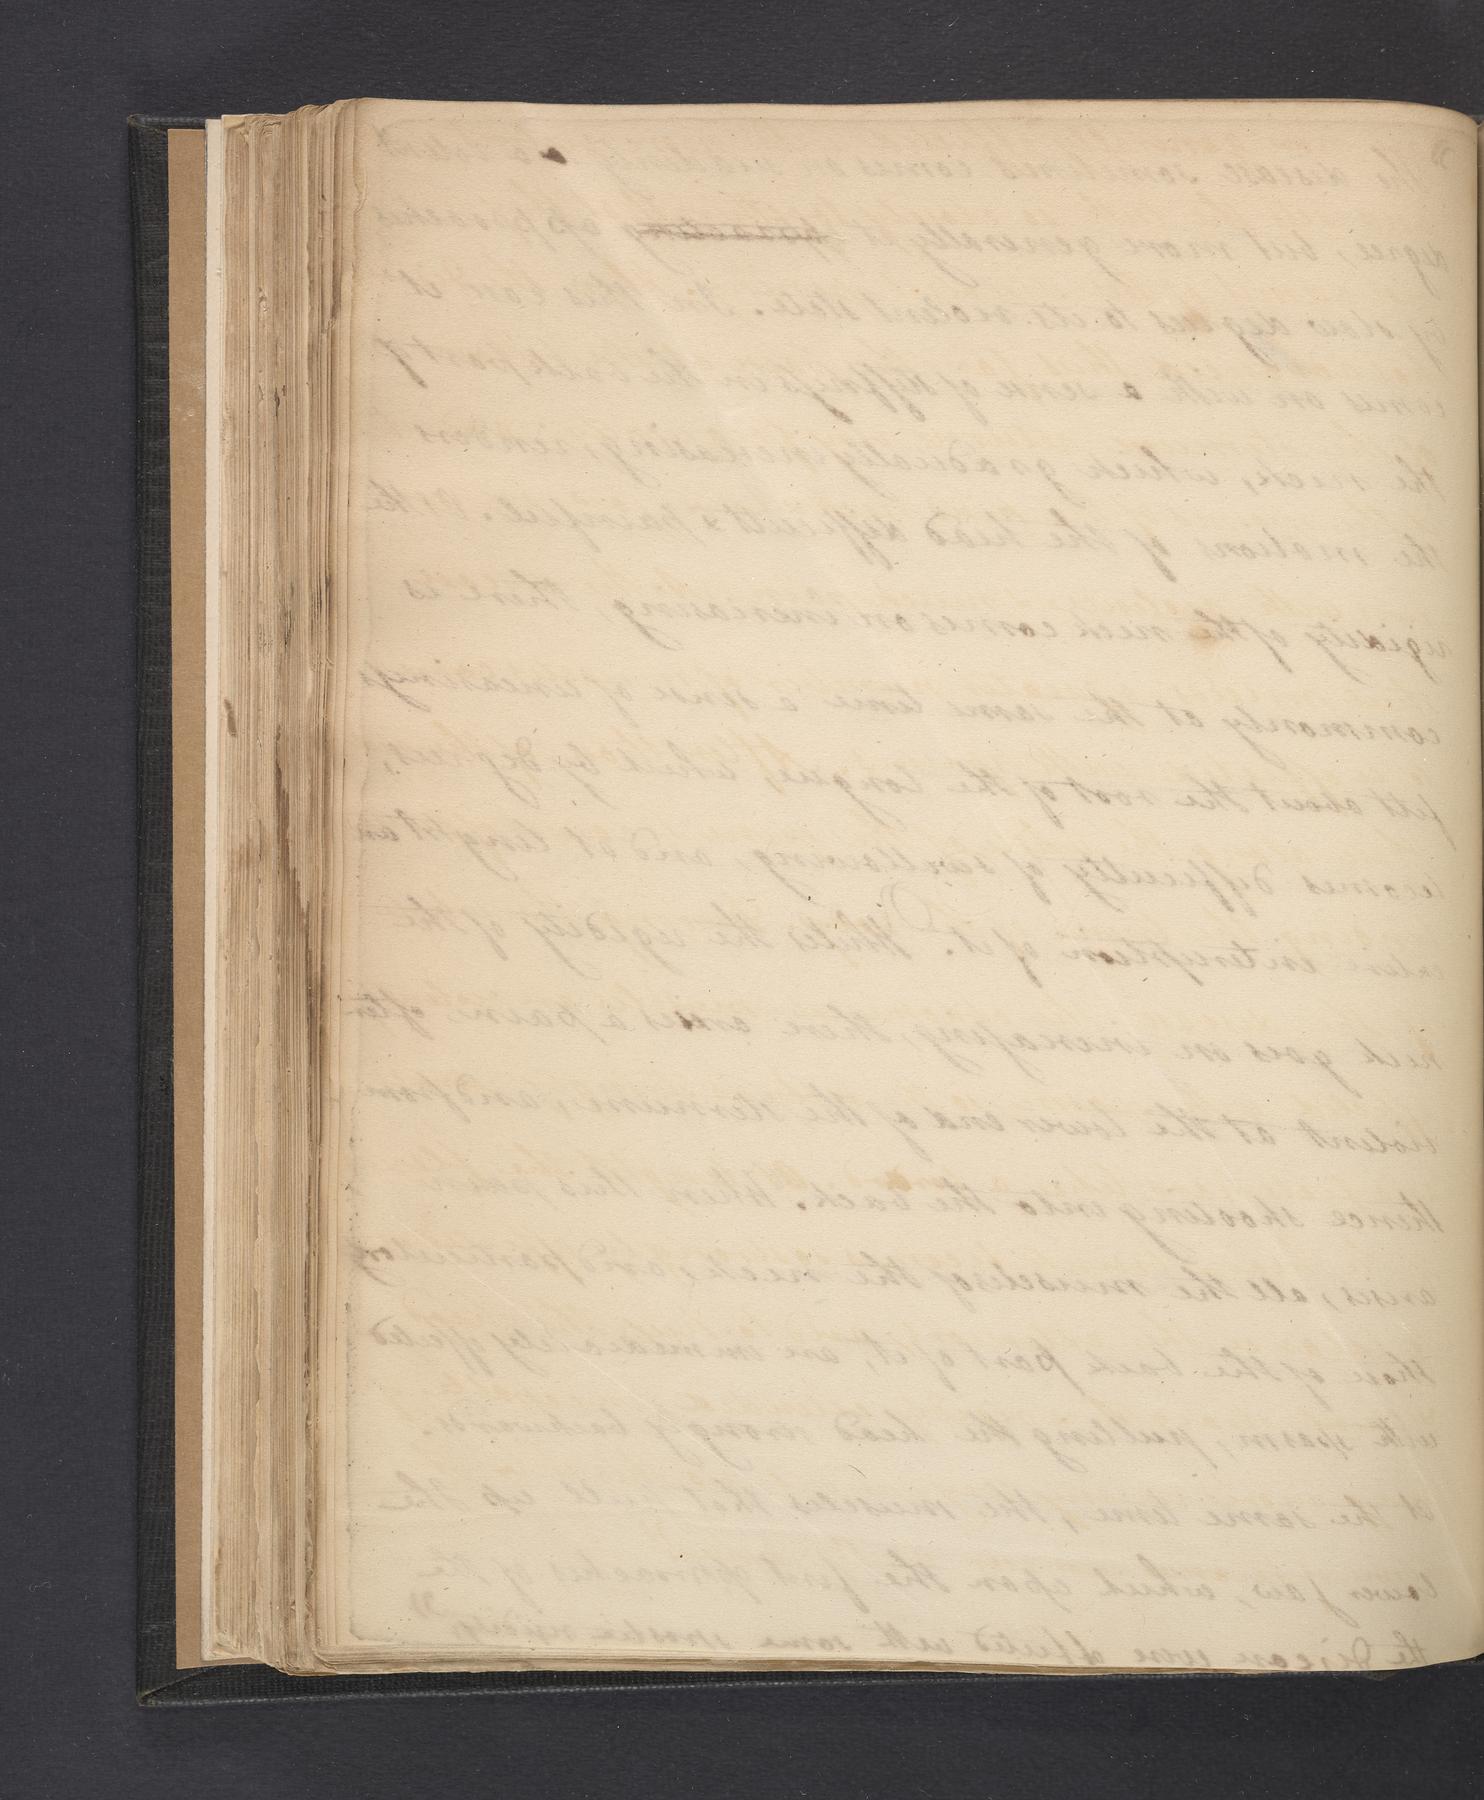 The disease sometimes comes on suddenly to a violent
degree, but more generally it approaches
by slow degrees to its violent state. In this case it
comes on with a sense of stiffness in the back part of
the neck, which gradually increasing, renders
the motions of the head difficult & painful. As the
rigidity of the neck comes on increasing, there is
commonly at the same time a sense of uneasiness
felt about the root of the tongue, which by degrees,
becomes difficulty of swallowing, and at length an
entire interruption of it. While the rigidity of the
neck goes on increasing, there arises a pain, often
violent at the lower end of the sternum, and from
thence shooting into the back. When this pain
arises, all the muscles of the neck, and particularly
those of the back part of it, are immediately affected
with spasm, pulling the head strongly backwards.
At the same time, the muscles that pull up the
lower jaw, which upon the first approaches of the
the disease were affected with some spastic rigidity,